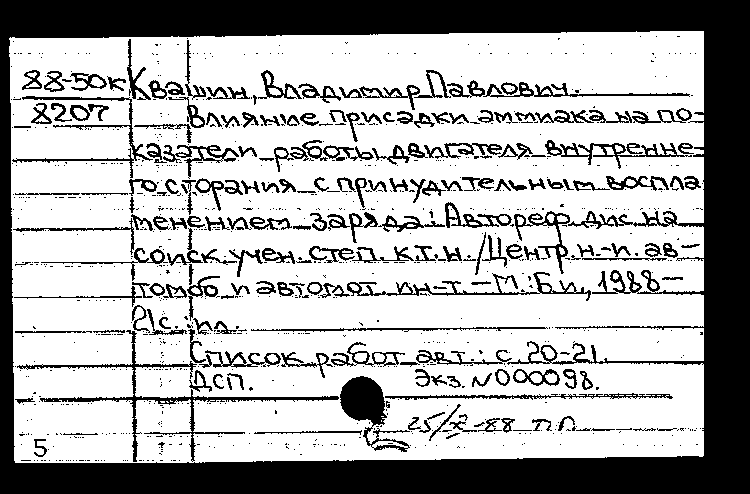 88-50к Квашин, Владимир Павлович.
8207 Влияние присадки аммиака на по-
казатели работы двигателя внутренне-
го сгорания с принудительным воспла
менением заряда: Автореф. дис. на
соиск. учен. степ. к.т.н. /Центр. н.-и. ав-
томоб и автомот. ин-т. - М.: Б.и., 1988 -
21с.: ил.
Список работ авт.: с. 20-21.
ДСП. Экз. N000098.
25/X-88
5